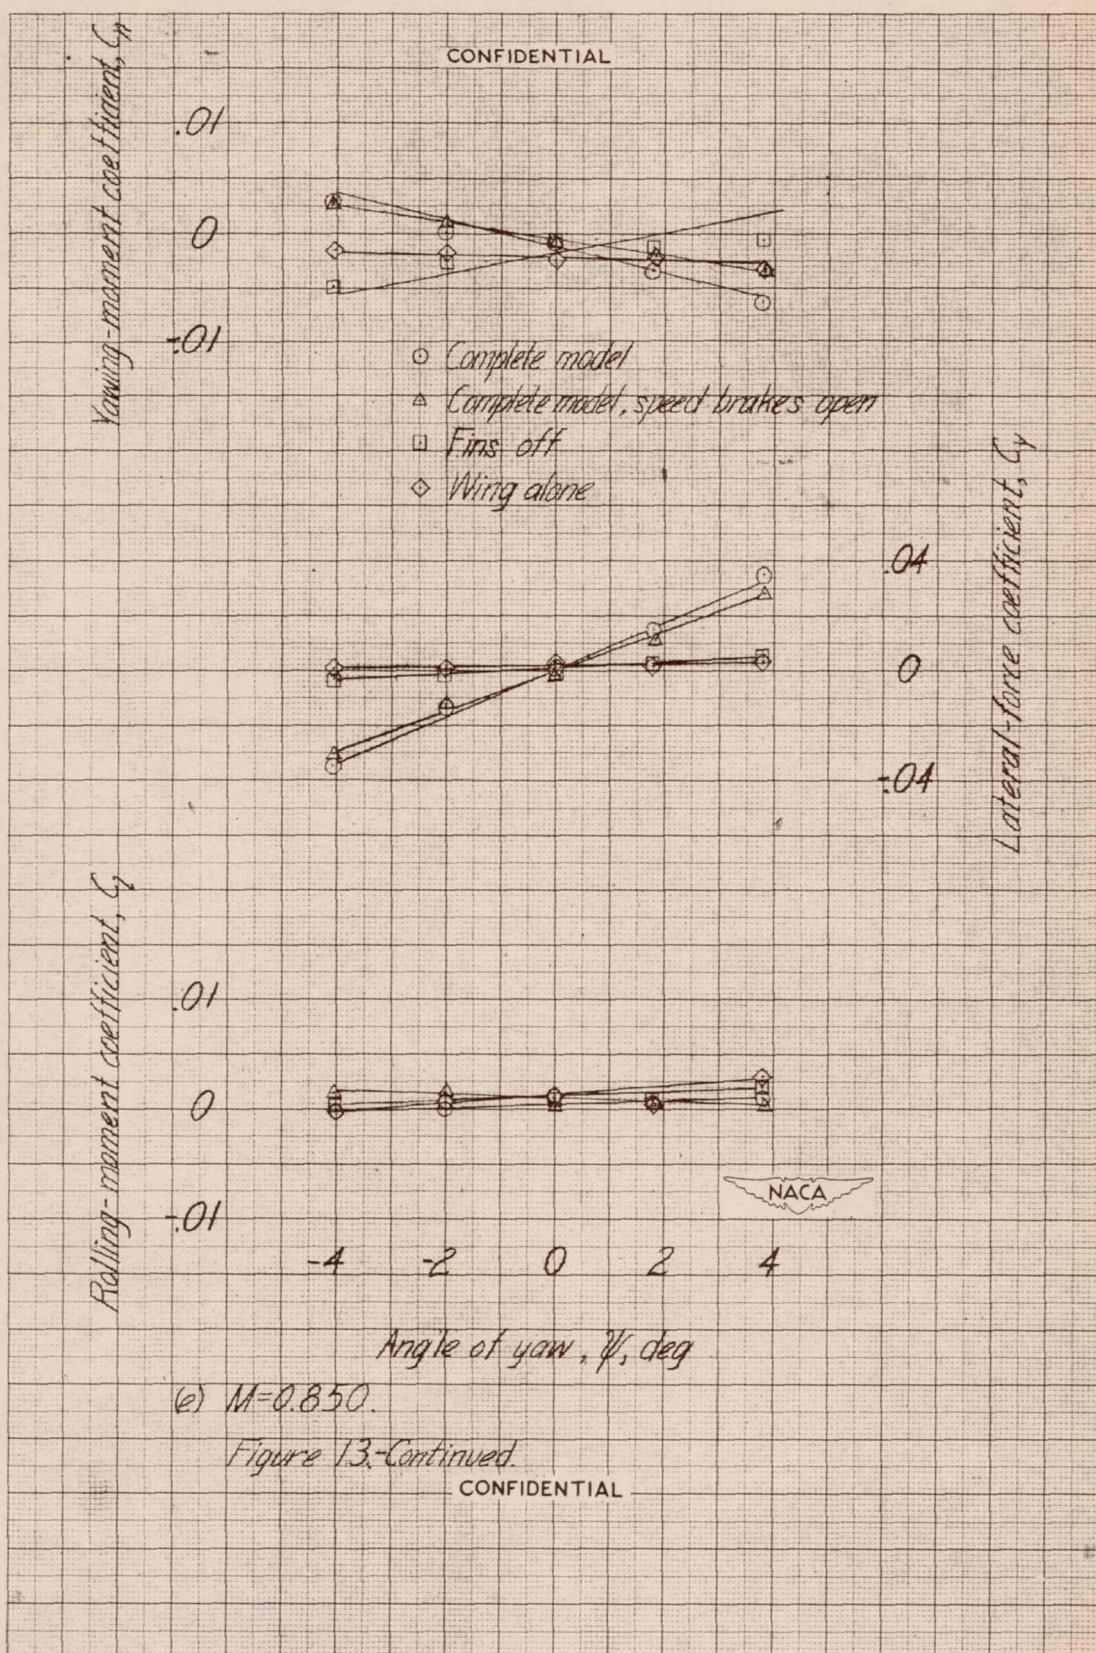 CONFIDENTIAL
Yawing-moment coefficient, Cn
.01
0
-.01
Complete model
Complete model, speed brakes open
Fins off
Wing alone
Lateral-force coefficient, Cy
.04
0
-.04
Rolling-moment coefficient, Cl
.01
0
-.01
NACA
-4 -2 0 2 4
Angle of yaw, ψ, deg
(e) M=0.850.
Figure 13.-Continued.
CONFIDENTIAL